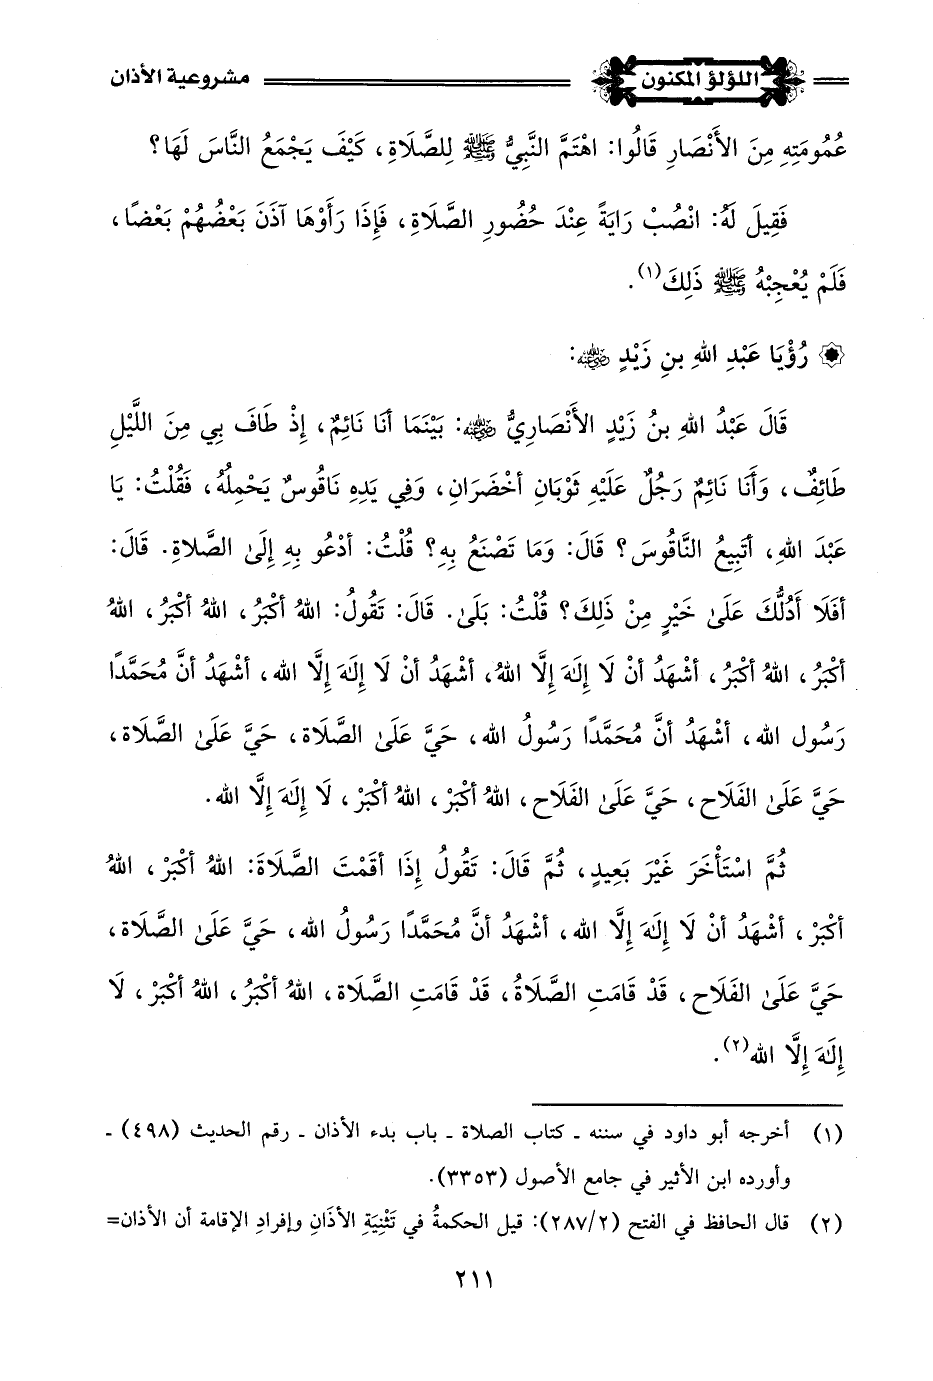 اللؤلؤ المكنون مشروعية الأذان
عُمُومَتِهِ مِنَ الأَنْصَارِ قَالُوا: اهْتَمَّ النَّبِيُّ ﷺ لِلصَّلَاةِ، كَيْفَ يَجْمَعُ النَّاسَ لَهَا؟
فَقِيلَ لَهُ: انْصُبْ رَايَةً عِنْدَ حُضُورِ الصَّلَاةِ، فَإِذَا رَأَوْهَا آذَنَ بَعْضُهُمْ بَعْضًا،
فَلَمْ يُعْجِبْهُ ﷺ ذَلِكَ(١).
رُؤْيَا عَبْدِ اللهِ بنِ زَيْدٍ رضي الله عنه:
قَالَ عَبْدُ اللهِ بنُ زَيْدٍ الأَنْصَارِيُّ رضي الله عنه: بَيْنَمَا أنَا نَائِمٌ، إِذْ طَافَ بِي مِنَ اللَّيْلِ
طَائِفٌ، وَأَنَا نَائِمٌ رَجُلٌ عَلَيْهِ ثَوْبَانِ أخْضَرَانِ، وَفِي يَدِهِ نَاقُوسٌ يَحْمِلُهُ، فَقُلْتُ: يَا
عَبْدَ اللهِ، أتَبِيعُ النَّاقُوسَ؟ قَالَ: وَمَا تَصْنَعُ بِهِ؟ قُلْتُ: أدْعُو بِهِ إِلَىٰ الصَّلاةِ. قَالَ:
أفَلَا أَدُلُّكَ عَلَىٰ خَيْرٍ مِنْ ذَلِكَ؟ قُلْتُ: بَلَىٰ. قَالَ: تَقُولُ: اللهُ أكْبَرُ، اللهُ أكْبَرُ، اللهُ
أكْبَرُ، اللهُ أكْبَرُ، أشْهَدُ أنْ لَا إِلَهَ إِلَّا اللهُ، أشْهَدُ أنْ لَا إِلَهَ إِلَّا الله، أشْهَدُ أنَّ مُحَمَّدًا
رَسُول الله، أشْهَدُ أنَّ مُحَمَّدًا رَسُولُ الله، حَيَّ عَلَىٰ الصَّلَاة، حَيَّ عَلَىٰ الصَّلَاة،
حَيَّ عَلَىٰ الفَلَاح، حَيَّ عَلَىٰ الفَلَاح، اللهُ أكْبَرْ، اللهُ أكْبَرْ، لَا إِلَهَ إِلَّا الله.
ثُمَّ اسْتَأْخَرَ غَيْرَ بَعِيدٍ، ثُمَّ قَالَ: تَقُولُ إِذَا أقَمْتَ الصَّلَاةَ: اللهُ أكْبَرْ، اللهُ
أكْبَرْ، أشْهَدُ أنْ لَا إِلَهَ إِلَّا الله، أشْهَدُ أنَّ مُحَمَّدًا رَسُولُ الله، حَيَّ عَلَىٰ الصَّلَاة،
حَيَّ عَلَىٰ الفَلَاح، قَدْ قَامَتِ الصَّلَاةُ، قَدْ قَامَتِ الصَّلَاة، اللهُ أكْبَرُ، اللهُ أكْبَرْ، لَا
إِلَهَ إِلَّا الله(٢).
(١) أخرجه أبو داود في سننه ـ كتاب الصلاة ـ باب بدء الأذان ـ رقم الحديث (٤٩٨) ـ
وأورده ابن الأثير في جامع الأصول (٣٣٥٣).
(٢) قال الحافظ في الفتح (٢/٢٨٧): قيل الحكمةُ في تَثْنِيَةِ الأذَانِ وإفرادِ الإقامة أن الأذان=
٢١١